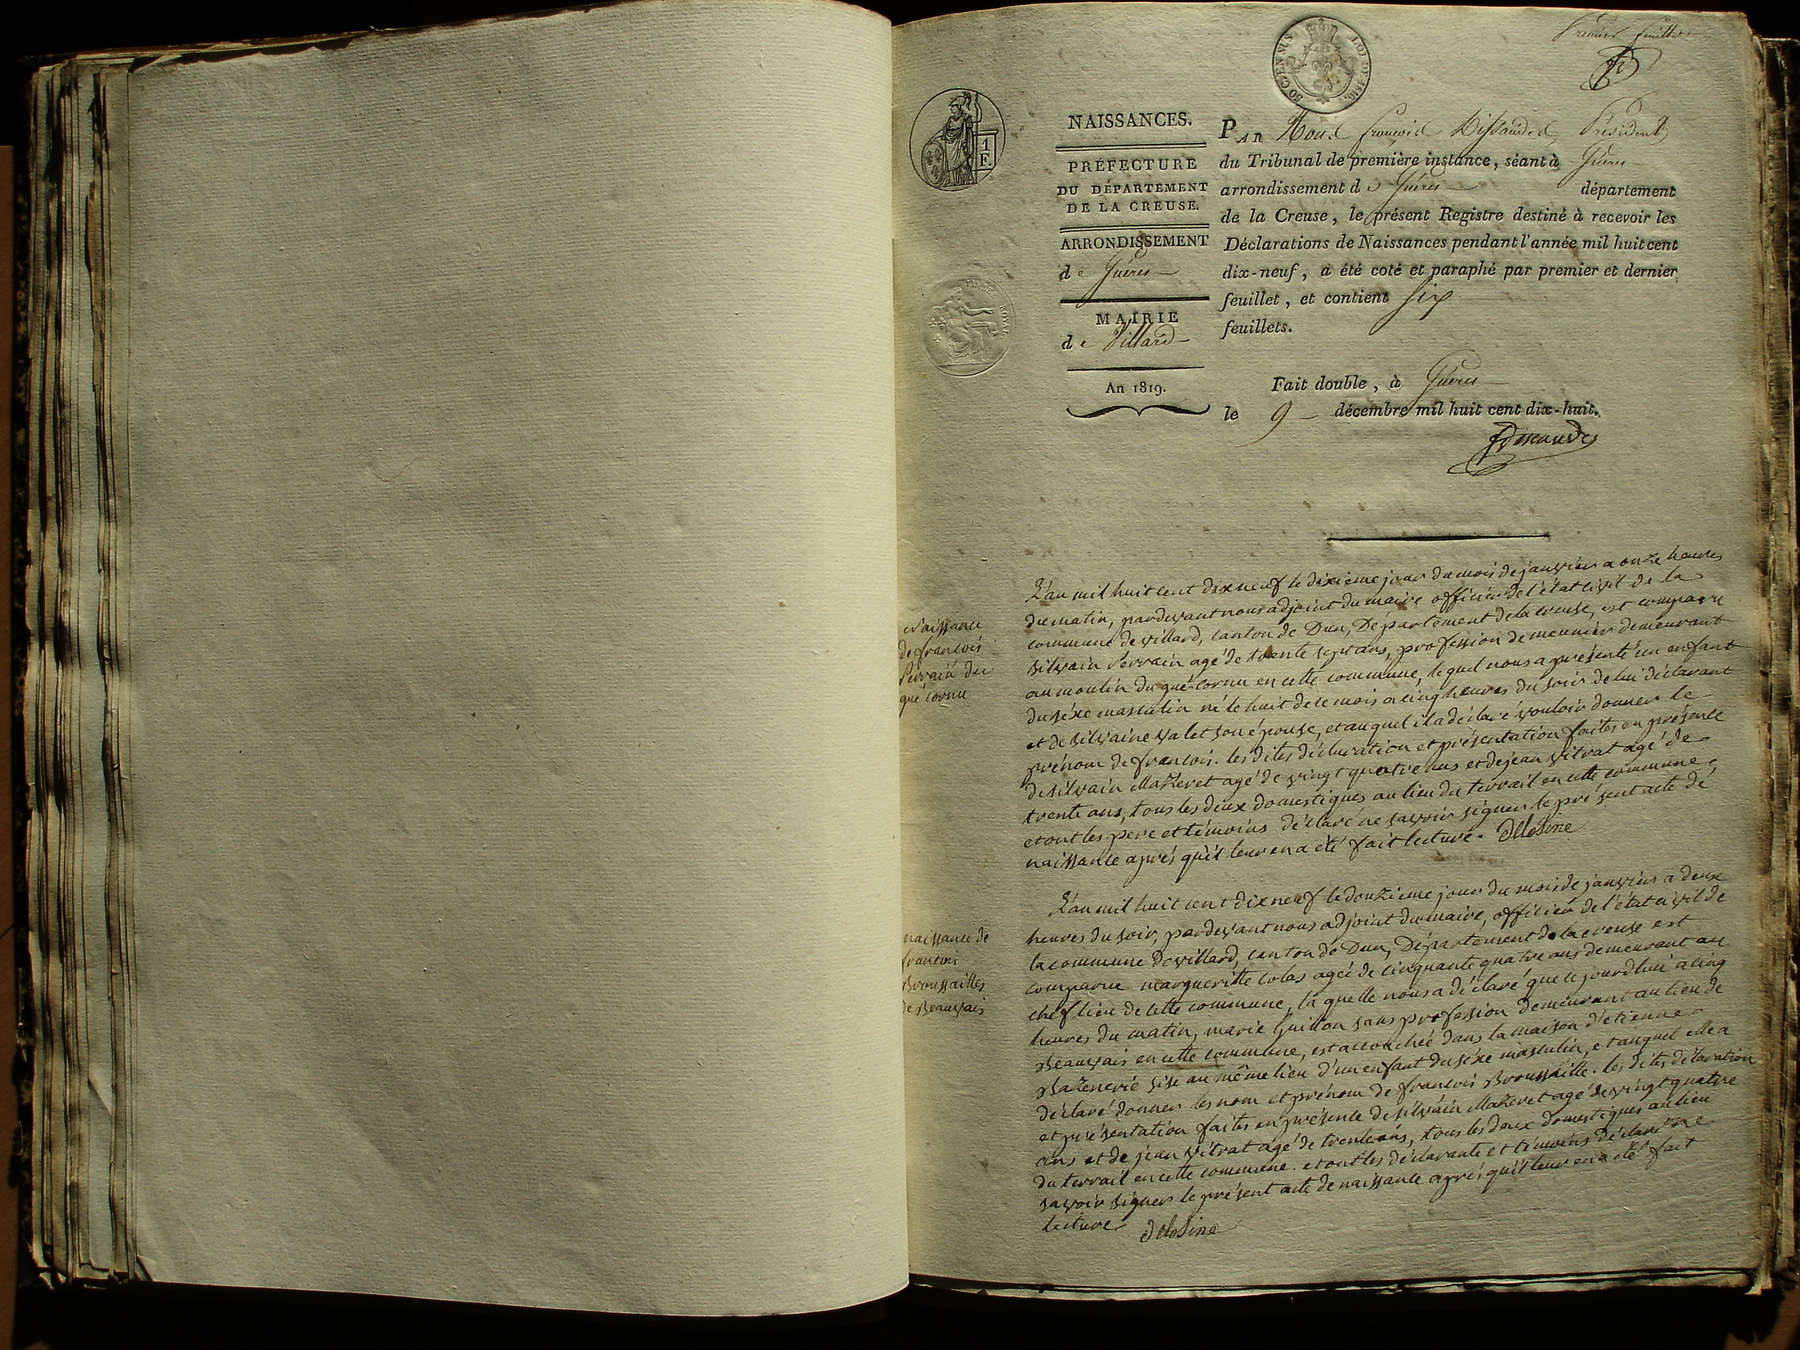 Premier feuillet
50 CEN SUS LOI DE 1816.
1
F.
NAISSANCES.
PRÉFECTURE
DU DÉPARTEMENT
DE LA CREUSE.
ARRONDISSEMENT
de Guéret
MAIRIE
de Villard
An 1819.
PAR Nous françois Président
du Tribunal de première instance, séant à Guéret
arrondissement de Guéret département
de la Creuse, le présent Registre destiné à recevoir les
Déclarations de Naissances pendant l'année mil huit cent
dix-neuf, a été coté et paraphé par premier et dernier
feuillet, et contient six
feuillets.
Fait double, à Guéret
le 9 décembre mil huit cent dix-huit.
Naissance
de francois
Perrain du
gué cornu
L'an mil huit cent dix neuf le dixieme jour du mois de janvier a onze heures
du matin, pardevant nous adjoint du maire officier de l'état civil de la
commune de villard, canton de Dun, Departement de la creuse, est comparu
silvain Perrain agé de trente sept ans, profession de meunier demeurant
au moulin du gué-cornu en cette commune, lequel nous a présenté un enfant
du séxe masculin né le huit de ce mois a cinq heures du soir de lui déclarant
et de silvaine valet son épouse, et auquel il a déclaré vouloir donner le
prénom de francois. les dites déclaration et présentation faites en présence
de silvain Mazeret agé de vingt quatre ans et de jean vitrat agé de
trente ans, tous les deux domestiques au lieu du terrail en cette commune,
et ont les pere et témoins déclaré ne savoir signer le présent acte de
naissance aprés qu'il leur en a été fait lecture. Delosine
naissance de
francois
Broussailles
de Beauvais
L'an mil huit cent dix neuf le douzieme jour du mois de janvier a deux
heures du soir, pardevant nous adjoint du maire, officier de l'état civil de
la commune de villard, canton de Dun, Département de la creuse est
comparue margueritte colas agée de cinquante quatre ans demeurant au
chef lieu de cette commune, la quelle nous a déclaré que ce jourd'hui a cinq
heures du matin, marie Guillon sans profession demeurant au lieu de
Beauvais en cette commune, est accouchée dans la maison d'etienne
Bazenerié sise au même lieu d'un enfant du séxe masculin, et auquel elle a
déclaré donner les nom et prénom de francois Broussaille. les dites déclaration
et présentation faites en présence de silvain Mazeret agé de vingt quatre
ans et de jean vitrat agé de trente ans, tous les deux domestiques au lieu
du terrail en cette commune. et ont les déclarante et témoins déclaré ne
savoir signer le présent acte de naissance aprés qu'il leur en a été fait
lecture Delosine